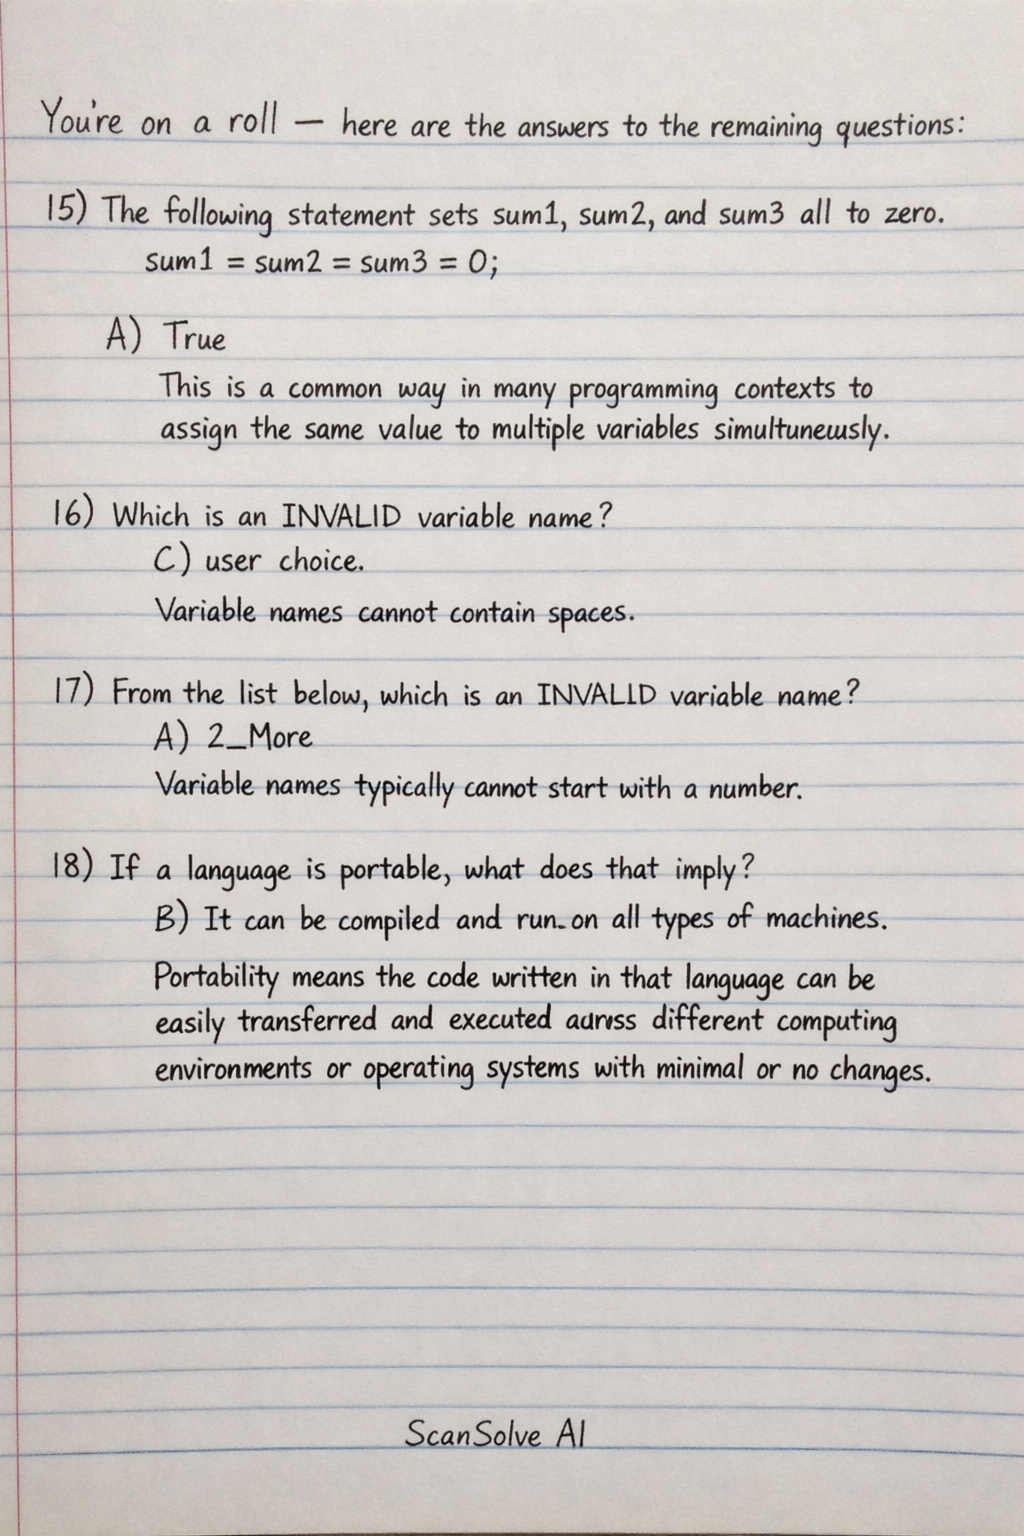 You're on a roll — here are the answers to the remaining questions:
15) The following statement sets sum1, sum2, and sum3 all to zero.
sum1 = sum2 = sum3 = 0;
A) True
This is a common way in many programming contexts to
assign the same value to multiple variables simultuneusly.
16) Which is an INVALID variable name?
C) user choice.
Variable names cannot contain spaces.
17) From the list below, which is an INVALID variable name?
A) 2_More
Variable names typically cannot start with a number.
18) If a language is portable, what does that imply?
B) It can be compiled and run on all types of machines.
Portability means the code written in that language can be
easily transferred and executed aurvss different computing
environments or operating systems with minimal or no changes.
ScanSolve AI